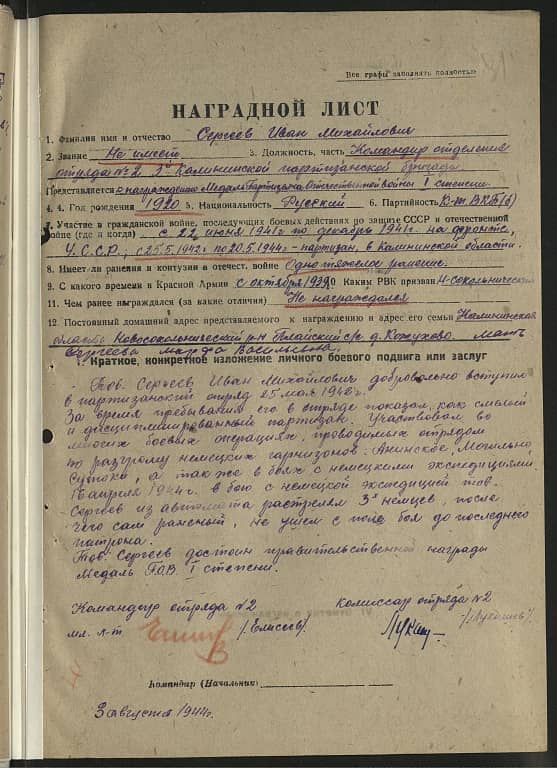 Все графы заполнять полностью
НАГРАДНОЙ ЛИСТ
1. Фамилия имя и отчество Сергеев Иван Михайлович
2. Звание Не имеет 3. Должность, часть Командир отделения
отряда №2, Калининской партизанской бригады
Представляется к награждению Медаль Партизана Отечественной войны I степени
4. 4. Год рождения 1920 5. Национальность Русский 6. Партийность К-т ВКП(б)
7. Участие в гражданской войне, последующих боевых действиях по защите СССР и отечественной
войне (где и когда) с 22 июня 1941г по декабрь 1941г. на фронте,
У.С.С.Р, с 25.5.1942г по 20.5.1944г - партизан, в Калининской области.
8. Имеет ли ранения и контузии в отечест. войне Одно тяжелое ранение.
9. С какого времени в Красной Армии с октября 1939г. 10. Каким РВК призван Н-Сокольническим
11. Чем ранее награждался (за какие отличия) Не награждался
12. Постоянный домашний адрес представляемого к награждению и адрес его семьи Калининская
область Новосокольнический р-н с/с д. Кожухово. Мать
Сергеева Марфа Васильевна
1. Краткое, конкретное изложение личного боевого подвига или заслуг
Тов. Сергеев Иван Михайлович добровольно вступил
в партизанский отряд 25 мая 1942г.
За время пребывания его в отряде показал, как смелый
и дисциплинированный партизан. Участвовал во
многих боевых операциях, проводимых отрядом
по разгрому немецких гарнизонов: Анинское, Могильно,
Сутоки, а так же в боях с немецкими экспедициями.
16 апреля 1944г. в бою с немецкой экспедицией тов.
Сергеев из автомата растрелял 3х немцев, после
чего сам раненый, не ушел с поля боя до последнего
патрона.
Тов. Сергеев достоин правительственной награды
Медаль П.О.В. I степени.
Командир отряда №2 Комиссар отряда №2
мл. л-т. /Елисеев/. /Лукашев/.
Командир (Начальник)
3 августа 1944г.